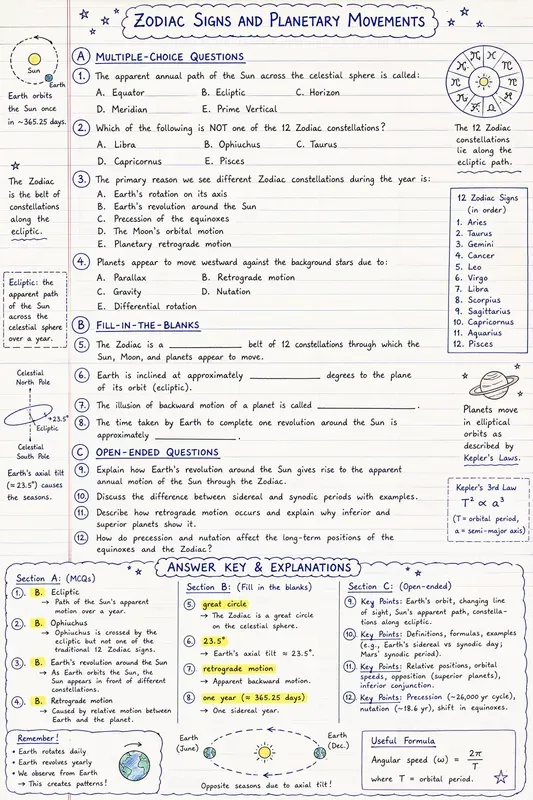 ZODIAC SIGNS AND PLANETARY MOVEMENTS
Sun
Earth
Earth orbits
the Sun once
in ~365.25 days.
The Zodiac
is the belt of
constellations
along the
ecliptic.
Ecliptic: the
apparent path
of the Sun
across the
celestial sphere
over a year.
Celestial
North Pole
+23.5°
Ecliptic
Celestial
South Pole
Earth's axial tilt
(≈ 23.5°) causes
the seasons.
A MULTIPLE-CHOICE QUESTIONS
1. The apparent annual path of the Sun across the celestial sphere is called:
A. Equator B. Ecliptic C. Horizon
D. Meridian E. Prime Vertical
2. Which of the following is NOT one of the 12 Zodiac constellations?
A. Libra B. Ophiuchus C. Taurus
D. Capricornus E. Pisces
3. The primary reason we see different Zodiac constellations during the year is:
A. Earth's rotation on its axis
B. Earth's revolution around the Sun
C. Precession of the equinoxes
D. The Moon's orbital motion
E. Planetary retrograde motion
4. Planets appear to move westward against the background stars due to:
A. Parallax B. Retrograde motion
C. Gravity D. Nutation
E. Differential rotation
B FILL-IN-THE-BLANKS
5. The Zodiac is a ____________ belt of 12 constellations through which the
Sun, Moon, and planets appear to move.
6. Earth is inclined at approximately ____________ degrees to the plane
of its orbit (ecliptic).
7. The illusion of backward motion of a planet is called ____________.
8. The time taken by Earth to complete one revolution around the Sun is
approximately ____________.
C OPEN-ENDED QUESTIONS
9. Explain how Earth's revolution around the Sun gives rise to the apparent
annual motion of the Sun through the Zodiac.
10. Discuss the difference between sidereal and synodic periods with examples.
11. Describe how retrograde motion occurs and explain why inferior and
superior planets show it.
12. How do precession and nutation affect the long-term positions of the
equinoxes and the Zodiac?
The 12 Zodiac
constellations
lie along the
ecliptic path.
12 Zodiac Signs
(in order)
1. Aries
2. Taurus
3. Gemini
4. Cancer
5. Leo
6. Virgo
7. Libra
8. Scorpius
9. Sagittarius
10. Capricornus
11. Aquarius
12. Pisces
Planets move
in elliptical
orbits as
described by
Kepler's Laws.
Kepler's 3rd Law
T² ∝ a³
(T = orbital period,
a = semi-major axis)
ANSWER KEY & EXPLANATIONS
Section A: (MCQs)
1. B. Ecliptic
→ Path of the Sun's apparent
motion over a year.
2. B. Ophiuchus
→ Ophiuchus is crossed by the
ecliptic but not one of the
traditional 12 Zodiac signs.
3. B. Earth's revolution around the Sun
→ As Earth orbits the Sun, the
Sun appears in front of different
constellations.
4. B. Retrograde motion
→ Caused by relative motion between
Earth and the planet.
Section B: (Fill in the blanks)
5 great circle
→ The Zodiac is a great circle
on the celestial sphere.
6 23.5°
→ Earth's axial tilt ≈ 23.5°.
7 retrograde motion
→ Apparent backward motion.
8 one year (≈ 365.25 days)
→ One sidereal year.
Section C: (Open-ended)
9. Key Points: Earth's orbit, changing line
of sight, Sun's apparent path, constella-
tions along ecliptic.
10. Key Points: Definitions, formulas, examples
(e.g., Earth's sidereal vs synodic day;
Mars' synodic period).
11. Key Points: Relative positions, orbital
speeds, opposition (superior planets),
inferior conjunction.
12. Key Points: Precession (~26,000 yr cycle),
nutation (~18.6 yr), shift in equinoxes.
Remember!
• Earth rotates daily
• Earth revolves yearly
• We observe from Earth
→ This creates patterns!
Earth
(June)
Earth
(Dec.)
Opposite seasons due to axial tilt!
Useful Formula
Angular speed (ω) = 2π / T
where T = orbital period.